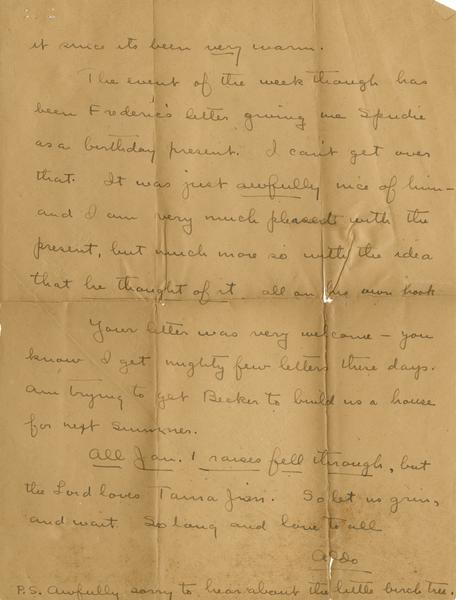 it since its been very warm.
The event of the week though has
been Frederic's letter giving me Spudie
as a birthday present. I can't get over
that. It was just awfully nice of him -
and I am very much pleased with the
present, but much more so with the idea
that he thought of it all on his own hook
Your letter was very welcome - you
know I get mighty few letters these days.
Am trying to get Becker to build us a house
for next summer.
All Jan. 1 raises fell through, but
the Lord loves Tama Jim. So let us grin,
and wait. So long and love to all
Aldo
P.S. Awfully sorry to hear about the little birch tree.